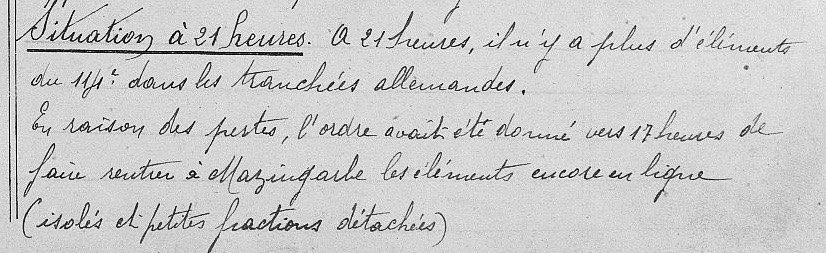 Situation à 21 heures. A 21 heures, il n'y a plus d'éléments
du 114e dans les tranchées allemandes.
En raison des pertes, l'ordre avait été donné vers 17 heures de
faire rentrer à Mazingarbe les éléments encore en ligne
(isolés et petites fractions détachées)